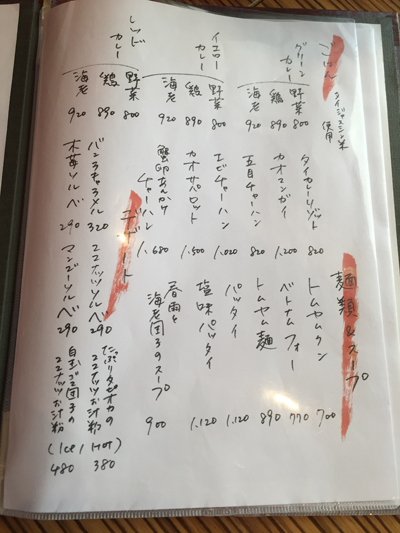 ごはん
タイジャスミン米
使用
グリーン
カレー
野菜 800
鶏 890
海老 920
イエロー
カレー
野菜 800
鶏 890
海老 920
レッド
カレー
野菜 800
鶏 890
海老 920
タイカレーリゾット 820
カオマンガイ 1,200
五目チャーハン 820
エビチャーハン 1,020
カオサパロット 1,500
蟹卵あんかけ
チャーハン 1,680
麺類&スープ
トムヤムクン 700
ベトナムフォー 770
トムヤム麺 890
パッタイ 1,120
塩味パッタイ 1,120
春雨と
海老団子のスープ 900
デザート
バンチャラメル 320
木苺ソルベ 290
ココナッツソルベ 290
マンゴーソルベ 290
たぷりタピオカの
ココナッツお汁粉 380
白玉ゴマ団子の
ココナッツお汁粉
(Ice / Hot) 480